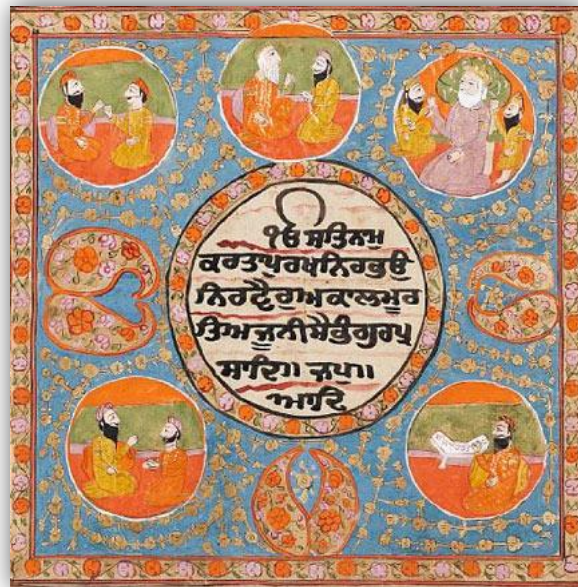 ੴ ਸਤਿਨਾਮ
ਕਰਤਾਪੁਰਖੁਨਿਰਭਉ
ਨਿਰਵੈਰੁਅਕਾਲਮੂਰ
ਤਿਅਜੂਨੀਸੈਭੰਗੁਰਪ੍ਰ
ਸਾਦਿ॥ ਜਪੁ॥
ਆਦਿ